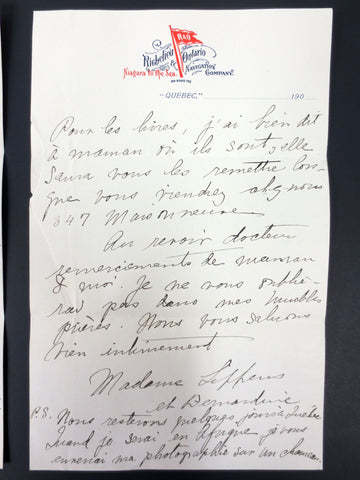 R&O
Richelieu & Ontario
Navigation
Niagara to the Sea. Company.
ON BOARD THE
"QUEBEC," 190
Pour les livres, j'ai bien dit
à maman où ils sont; elle
saura vous les remettre lors-
que vous viendrez chez nous
347 Maisonneuve
Au revoir docteur
remerciements de maman
& moi. Je ne vous oublie-
rai pas dans mes humbles
prières. Nous vous saluons
bien intimement
Madame
et
P.S. Nous resterons quelques jours à Québec
Quand je serai en Afrique je vous
enverrai ma photographie sur un chameau.